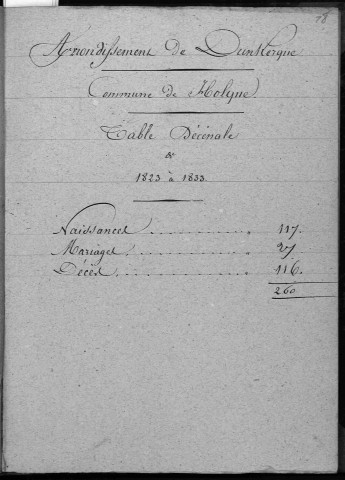 78
Arrondissement de Dunkerque
Commune de Holque
Table Décénale
de
1823 à 1833
Naissances 117.
Mariages 27
Décès 116.
260